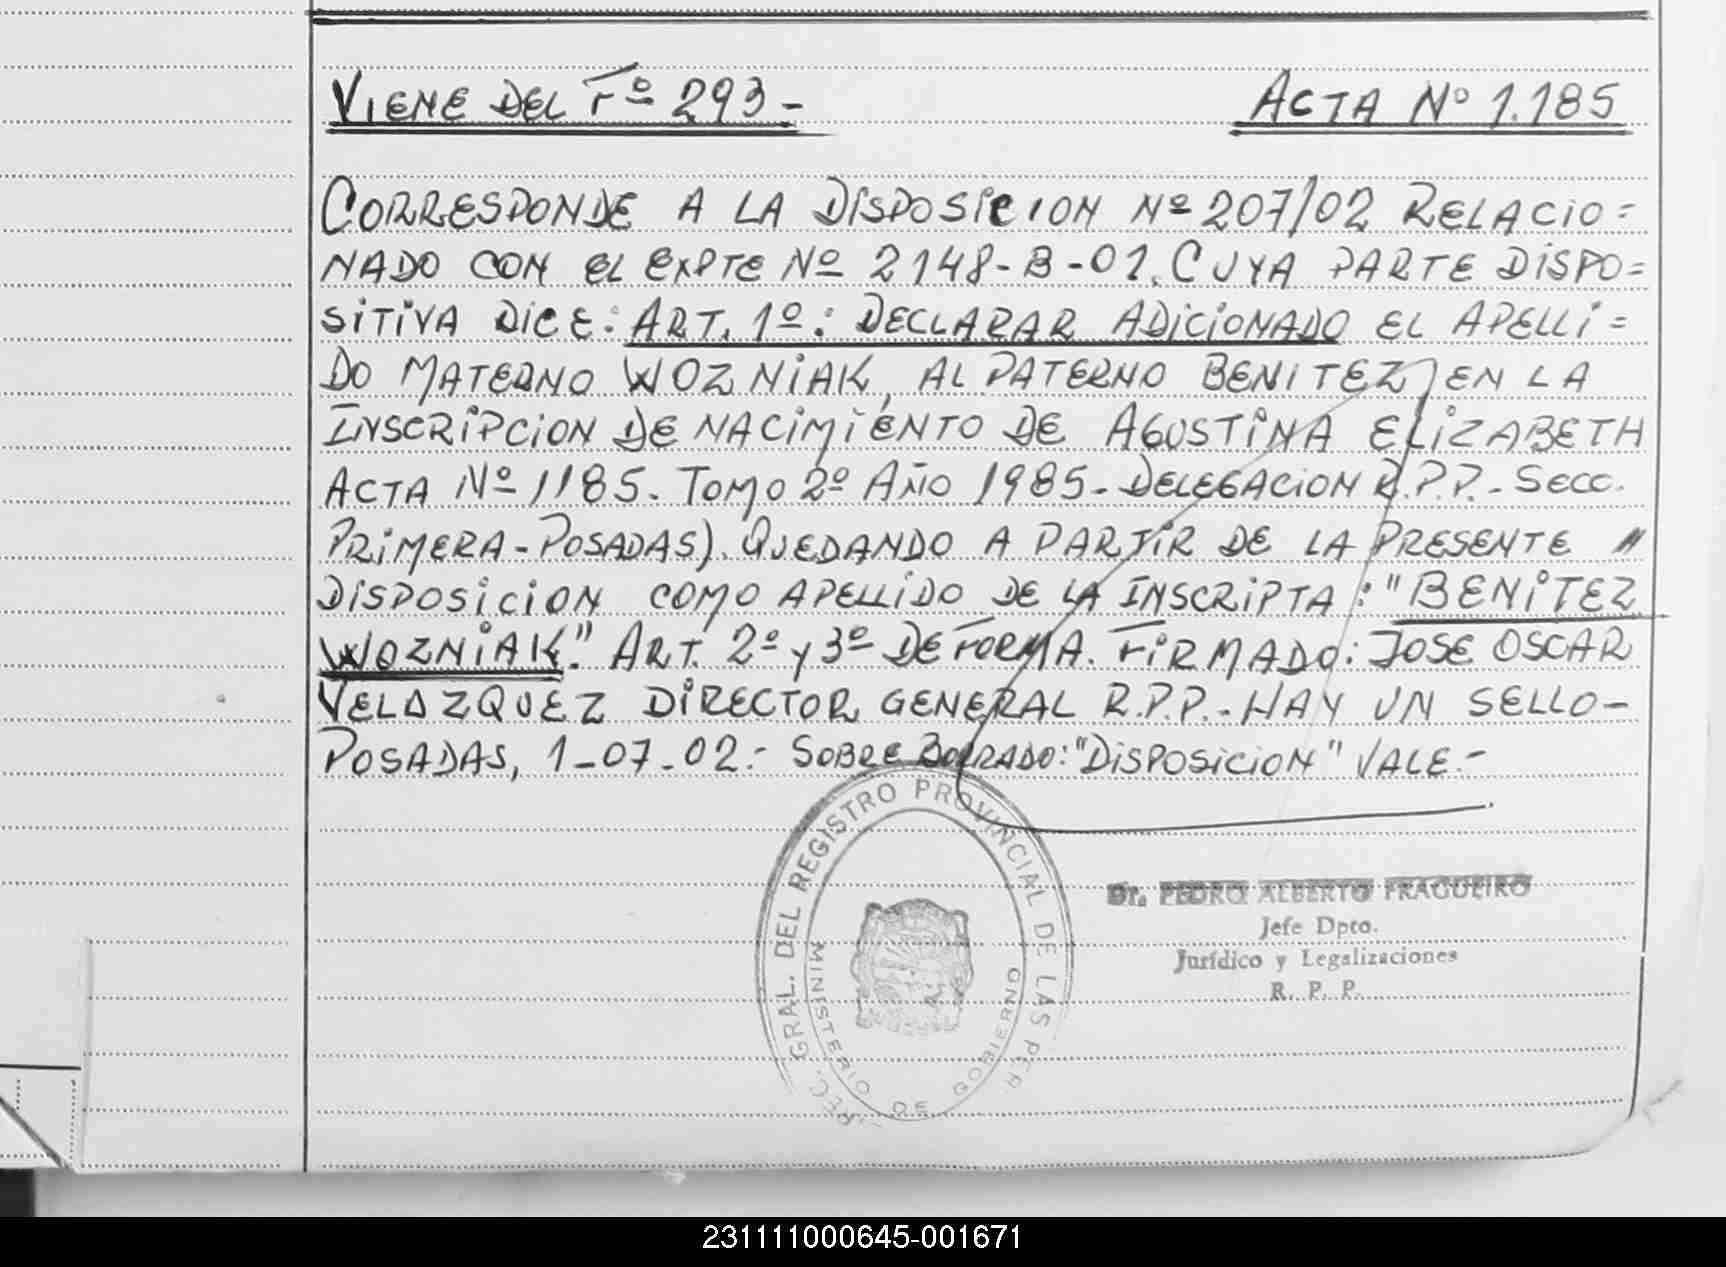 VIENE DEL Fº 293-
ACTA Nº 1.185
CORRESPONDE A LA DISPOSICION Nº 207/02 RELACIO=
NADO CON EL EXPTE Nº 2148-B-01. CUYA PARTE DISPO=
SITIVA DICE: ART. 1º: DECLARAR ADICIONADO EL APELLI=
DO MATERNO WOZNIAK, AL PATERNO BENITEZ, EN LA
INSCRIPCION DE NACIMIENTO DE AGUSTINA ELIZABETH
ACTA Nº 1185. TOMO 2º AÑO 1985- DELEGACION R.P.P.- SECC.
PRIMERA-POSADAS). QUEDANDO A PARTIR DE LA PRESENTE "
DISPOSICION COMO APELLIDO DE LA INSCRIPTA: "BENITEZ
WOZNIAK". ART. 2º y 3º DE FORMA. FIRMADO: JOSE OSCAR
VELAZQUEZ DIRECTOR GENERAL R.P.P.- HAY UN SELLO-
POSADAS, 1-07-02.- SOBRE BORRADO: "DISPOSICION" VALE.-
REC. GRAL. DEL REGISTRO PROVINCIAL DE LAS PER
MINISTERIO DE GOBIERNO
Dr. PEDRO ALBERTO FRAGUEIRO
Jefe Dpto.
Jurídico y Legalizaciones
R. P. P.
231111000645-001671